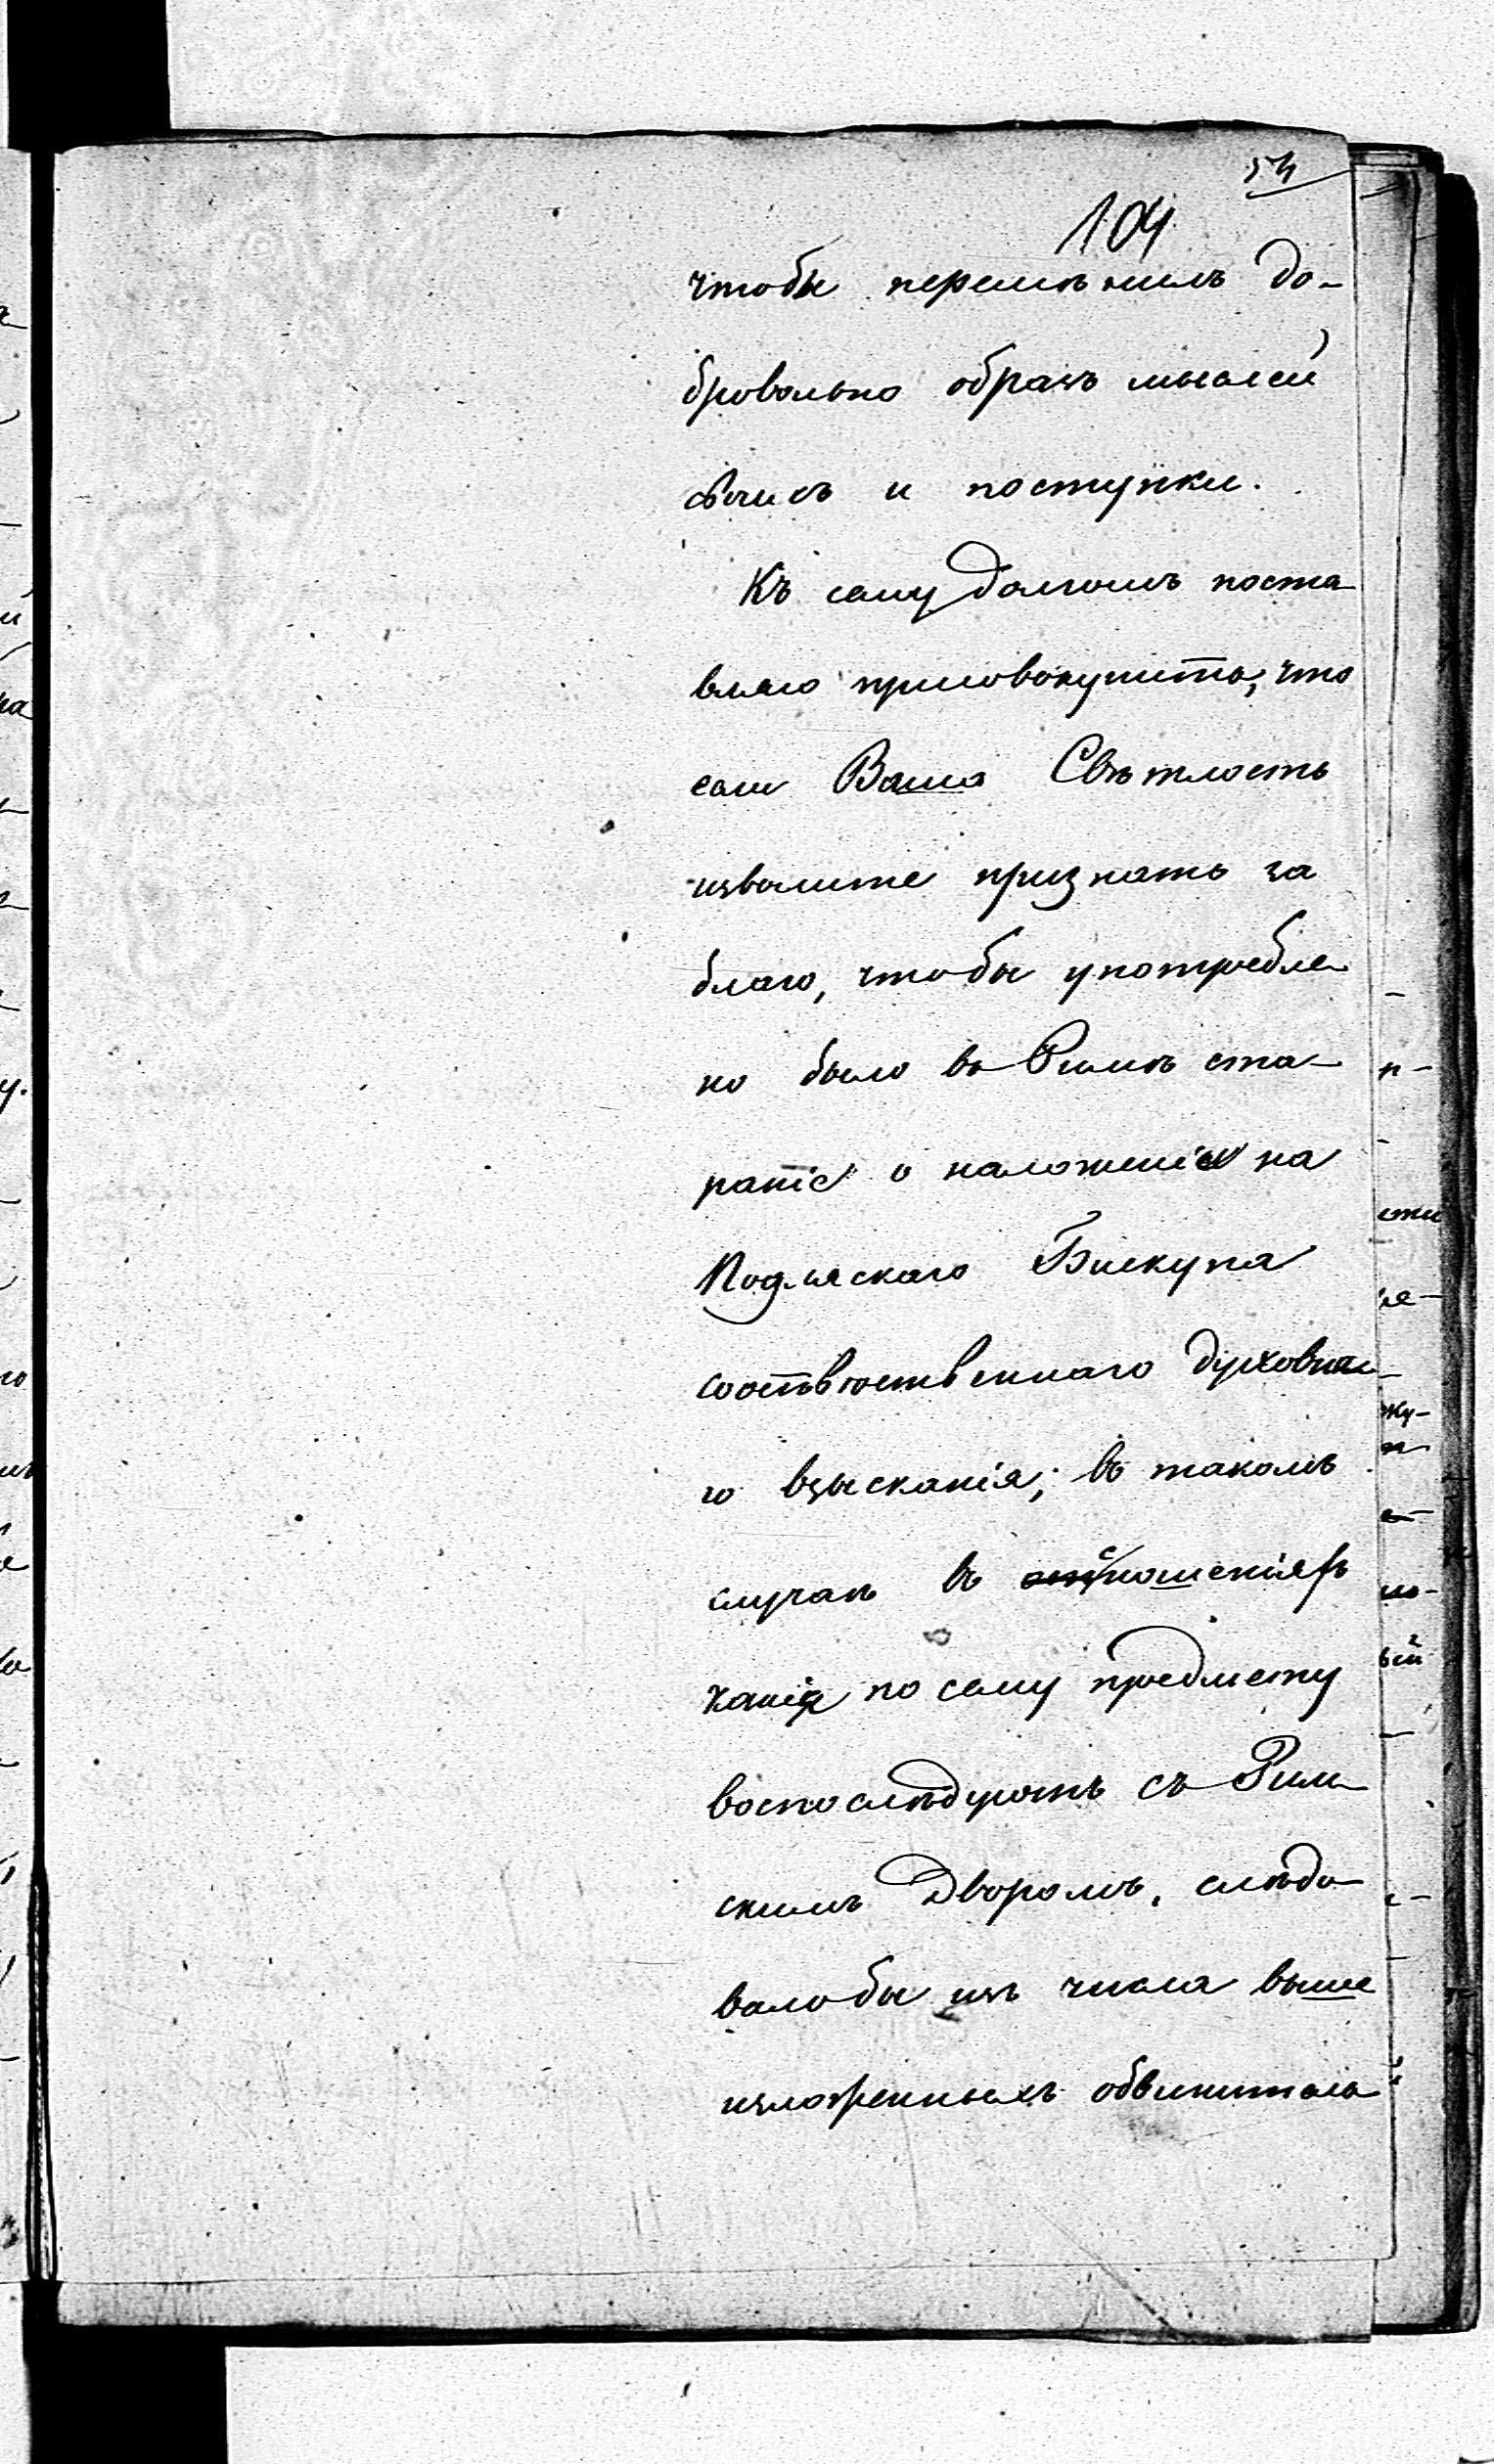 54
104
чтобы перемѣнилъ до-
бровольно образъ мыслей
своихъ и поступки.
Къ сему долгомъ поста
вляю присовокупить, что
если Ваша Свѣтлость
изволите признать за
благо, чтобы употребле
но было въ Римѣ ста-
раніе о наложеніи на
Подляскаго Бискупа
соотвѣтственнаго духовна-
го взысканія; въ такомъ
случаѣ въ сношеніяхъ
какія по сему предмету
воспослѣдуютъ съ Рим-
скимъ Дворомъ, слѣдо-
вало бы изъ числа выше
изложенныхъ обвинитель